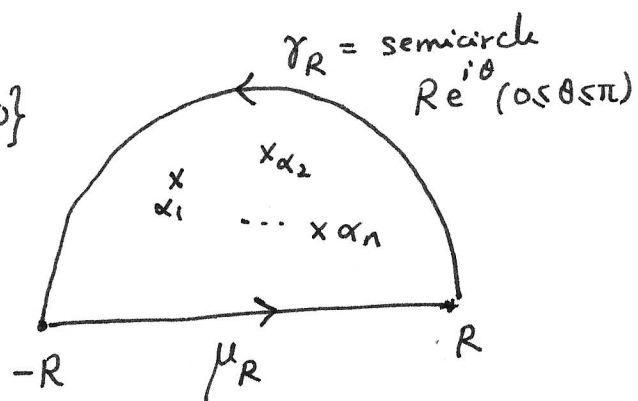 γ_R = semicircle
Re^{iθ} (0≤θ≤π)
}
x α_2
x
α_1
... x α_n
-R
μ_R
R